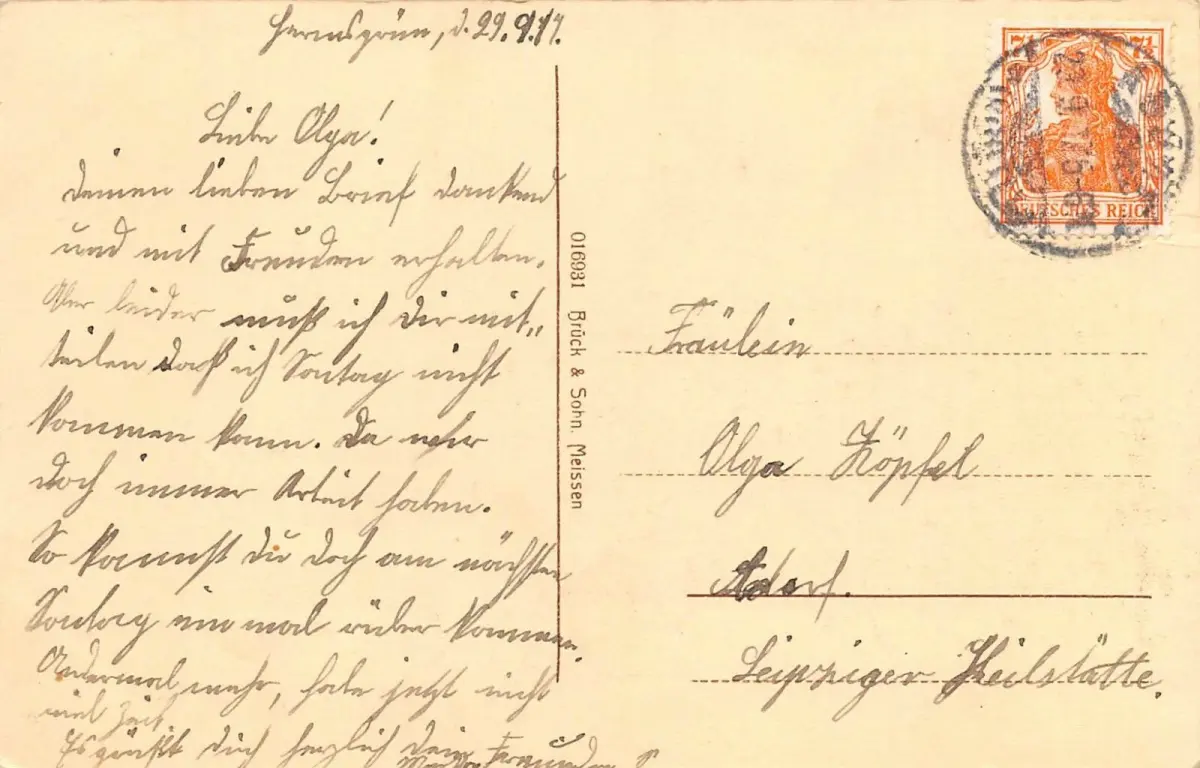 Hermsgrün, d. 29.9.17.
Liebe Olga!
Deinen lieben Brief dankend
und mit Freuden erhalten.
Aber leider muß ich Dir mit„
teilen daß ich Sontag nicht
kommen kann. Da wir
doch immer Arbeit haben.
So kannst du doch am nächsten
Sontag ein mal rüber kommen.
Andermal mehr, habe jetzt nicht
viel Zeit.
Es grüßt dich herzlich Dein Freundin
016931 Brück & Sohn. Meissen
7½ 7½
DEUTSCHES REICH
Fräulein
Olga Köpfel
Adorf.
Leipziger Heilstätte.